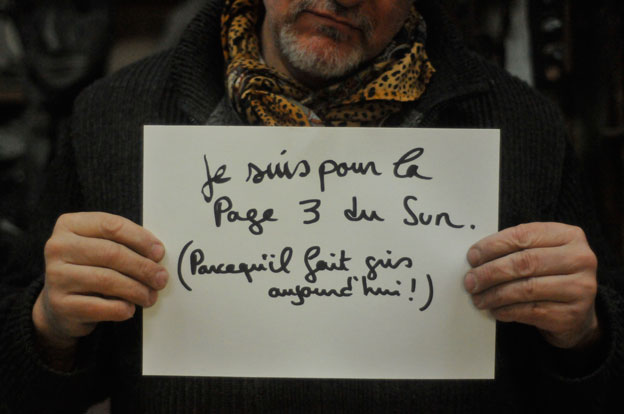 Je suis pour la
Page 3 du Sun.
(Parcequ'il fait gris
aujourd'hui !)